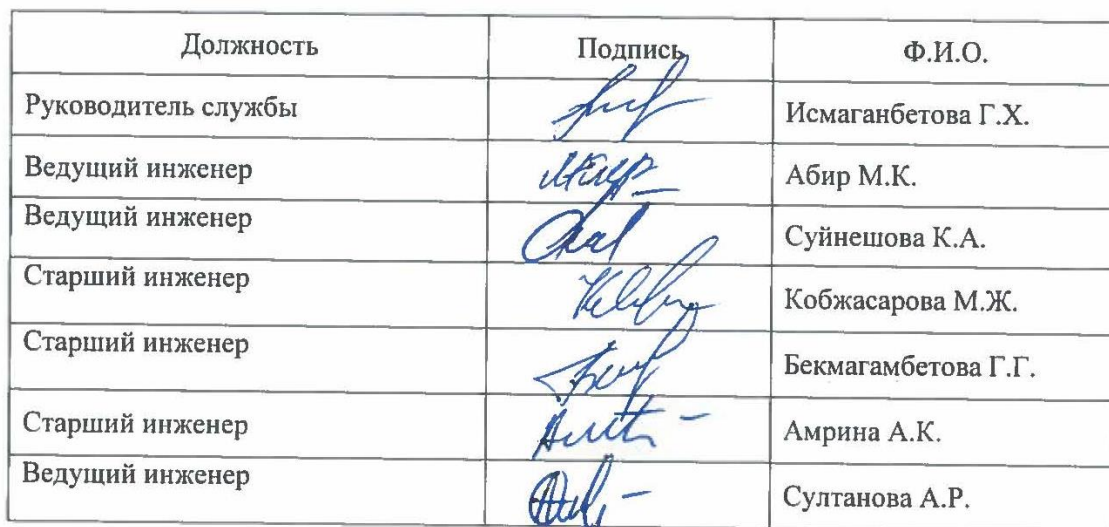 Должность Подпись Ф.И.О.
Руководитель службы Исмаганбетова Г.Х.
Ведущий инженер Абир М.К.
Ведущий инженер Суйнешова К.А.
Старший инженер Кобжасарова М.Ж.
Старший инженер Бекмагамбетова Г.Г.
Старший инженер Амрина А.К.
Ведущий инженер Султанова А.Р.